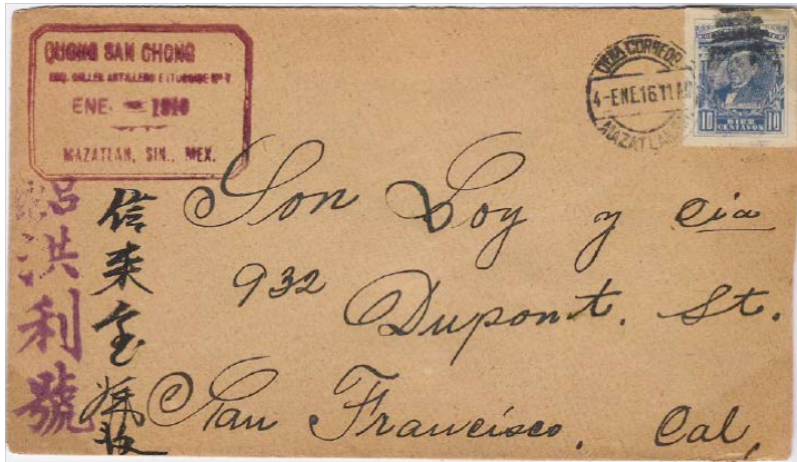 QUONG SAN CHONG
ESQ. CALLES ARTILLERO E ITURBIDE Nº 7
ENE. 1916
MAZATLAN, SIN., MEX.
OFNA CORREOS
4-ENE.16.11 A
MAZATLAN
10 DIEZ CENTAVOS 10
Son Loy y Cia
932
Dupont. St.
San Francisco. Cal.
信来金
收
洪利號